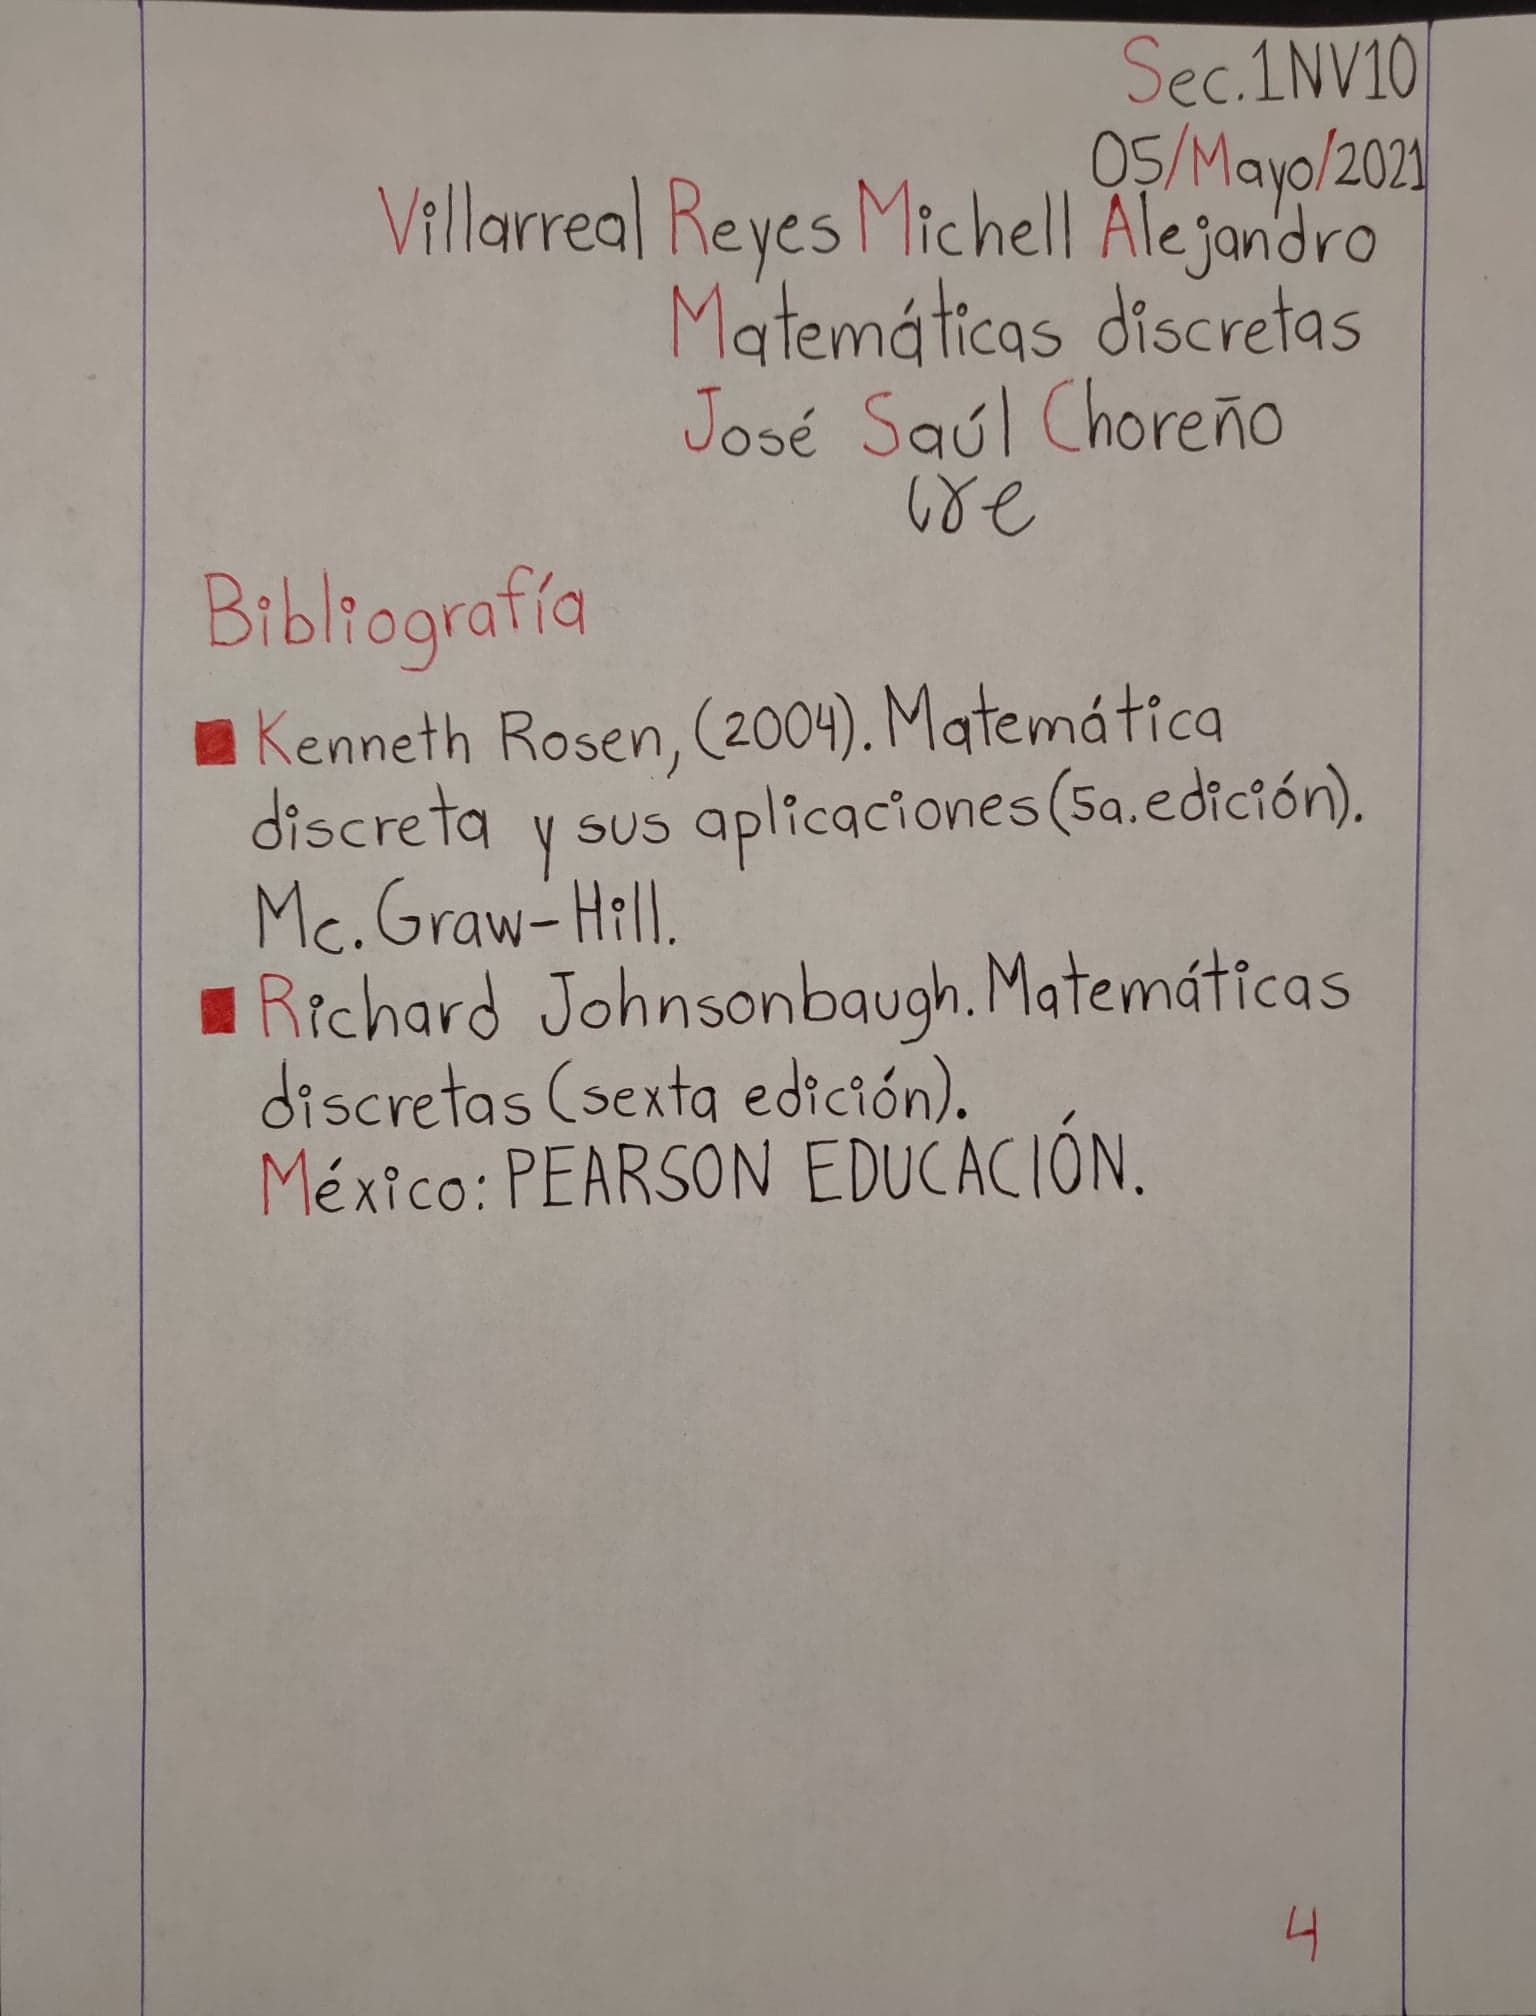 Sec.1NV10
05/Mayo/2021
Villarreal Reyes Michell Alejandro
Matemáticas discretas
José Saúl Choreño
Bibliografía
Kenneth Rosen, (2004). Matemática
discreta y sus aplicaciones (5a. edición).
Mc. Graw-Hill.
Richard Johnsonbaugh. Matemáticas
discretas (sexta edición).
México: PEARSON EDUCACIÓN.
4